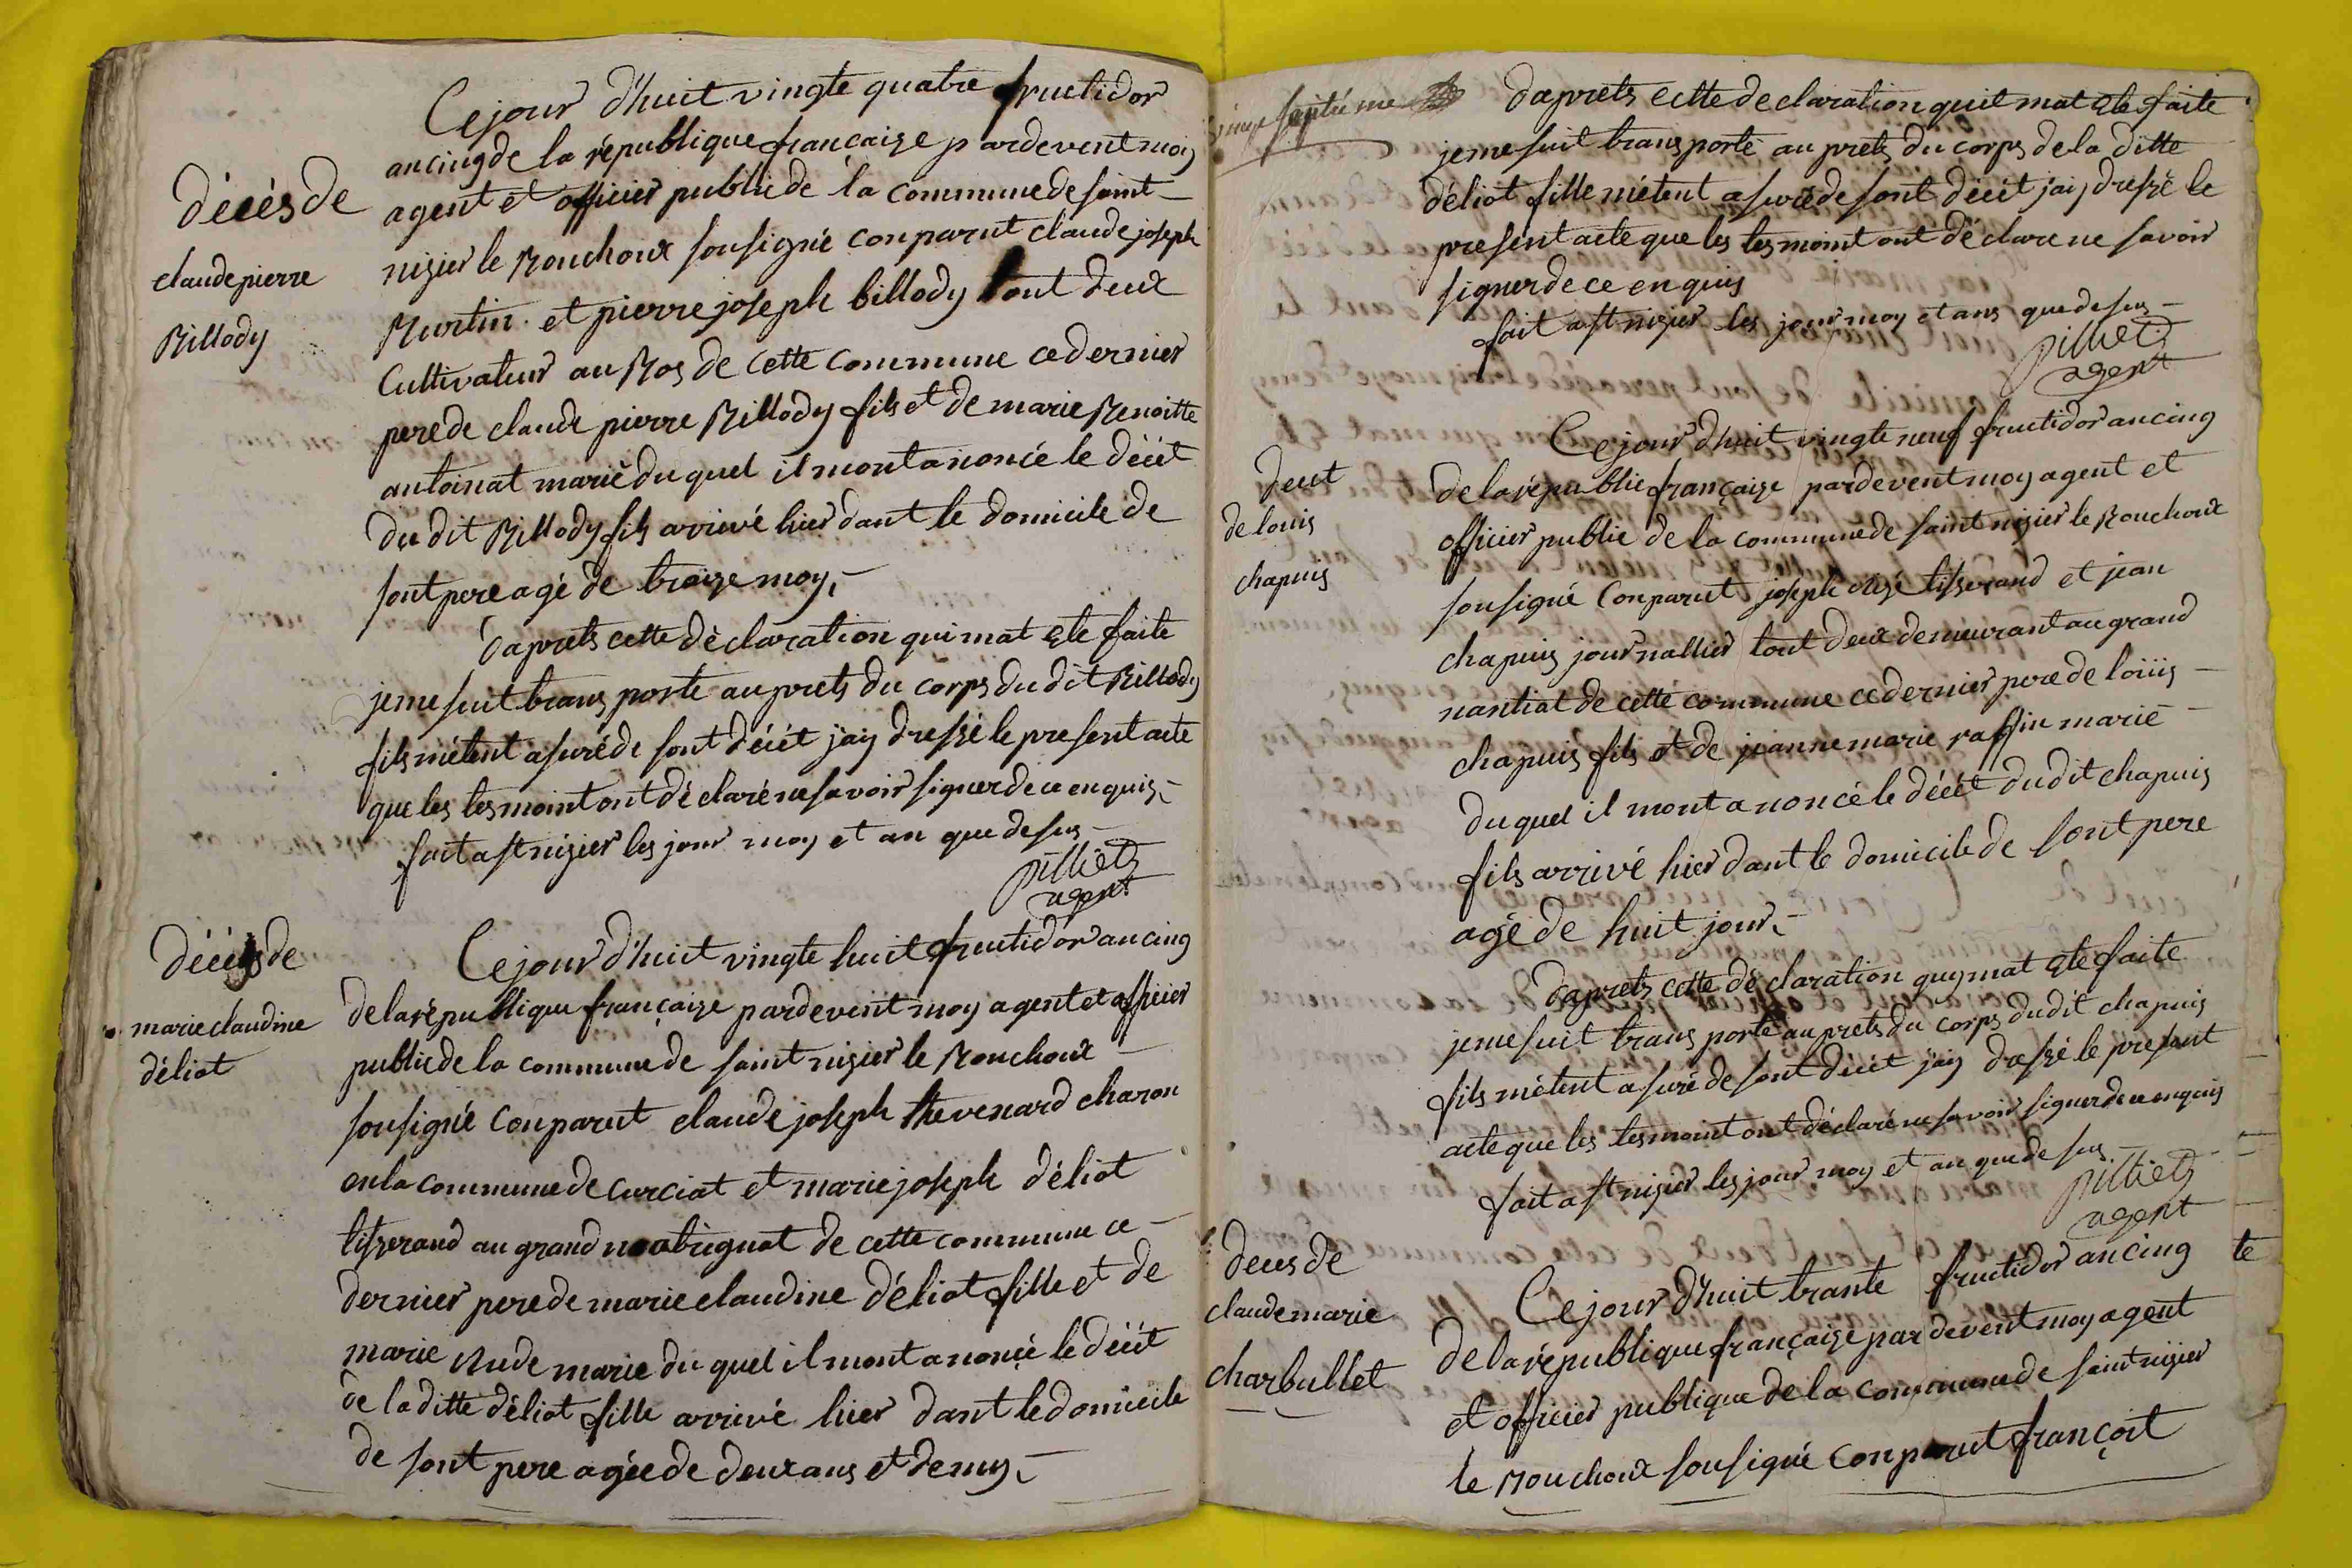 décès de
claude pierre
Billody
Ce jour d'huit vingte quatre fructidor
an cinq de la république françaize pardevent moy
agent et officier public de la commune de saint
nizier le Bouchoux sousigné conparut claude joseph
Burtin et pierre joseph billody tout deux
Cultivateur au Bos de cette commune ce dernier
pere de claude pierre Billody fils et de marie Benoitte
antoinat marié du quel il mont anoncé le décét
du dit Billody fils arrivé hier dant le domicile de
sont pere agé de traize moy,
d'aprets cette déclaration qui mat ete faite
je me suit transporte auprets du corps du dit Billody
fils métent asuré de sont décét j'ay dressé le present acte
que les tesmoint ont déclaré ne savoir signer de ce enquis,
fait a st nizier les jour moy et an que desus
pilliet
agent
décés de
marie claudine
déliat
Ce jour d'huit vingte huit fructidor an cinq
de la république françaize pardevent moy agent et officier
public de la commune de saint nizier le Bouchoux
sousigné conparut claude joseph thevenard charon
en la commune de curciat et marie joseph déliat
tisserand au grand nabrignat de cette commune ce
dernier pere de marie claudine déliat fille et de
marie marie du quel il mont anoncé le décét
de la ditte déliat fille arrivé hier dant le domicile
de sont pere agée de deux ans et demy,
vingt septié me
d'aprets cette declaration quil mat ete faite
je me suit transporté auprets du corps de la ditte
déliat fille métent asuré de sont décét j'ay dressé le
present acte que les tesmoint ont déclare ne savoir
signer de ce enquis
fait a st nizier les jour moy et ans que desus
pilliet
agent
decet
de louis
chapuis
Ce jour d'huit vingte neuf fructidor an cinq
de la républic françaize pardevent moy agent et
officier public de la commune de saint nizier le Bouchoux
sousigné Conparut joseph tisserand et jean
chapuis journallier tout deux demeurant au grand
nantiat de cette commune ce dernier pere de loüis
chapuis fils et de jeanne marie raffin marié
du quel il mont anoncé le décét du dit chapuis
fils arrivé hier dant le domicile de sont pere
agé de huit jour,
d'aprets cette déclaration quy mat ete faite
je me suit transporté auprets du corps du dit chapuis
fils métent asuré de sont décét j'ay dressé le present
acte que les tesmoint ont déclaré ne savoir signer de ce enquis
fait a st nizier les jour moy et an que desus
pilliet
agent
deces de
claude marie
charbullet
Ce jour d'huit trante fructidor an cinq
de la république françaize pardevent moy agent
et officier publique de la commune de saint nizier
le Bouchoux sousigné conparut françoit
te